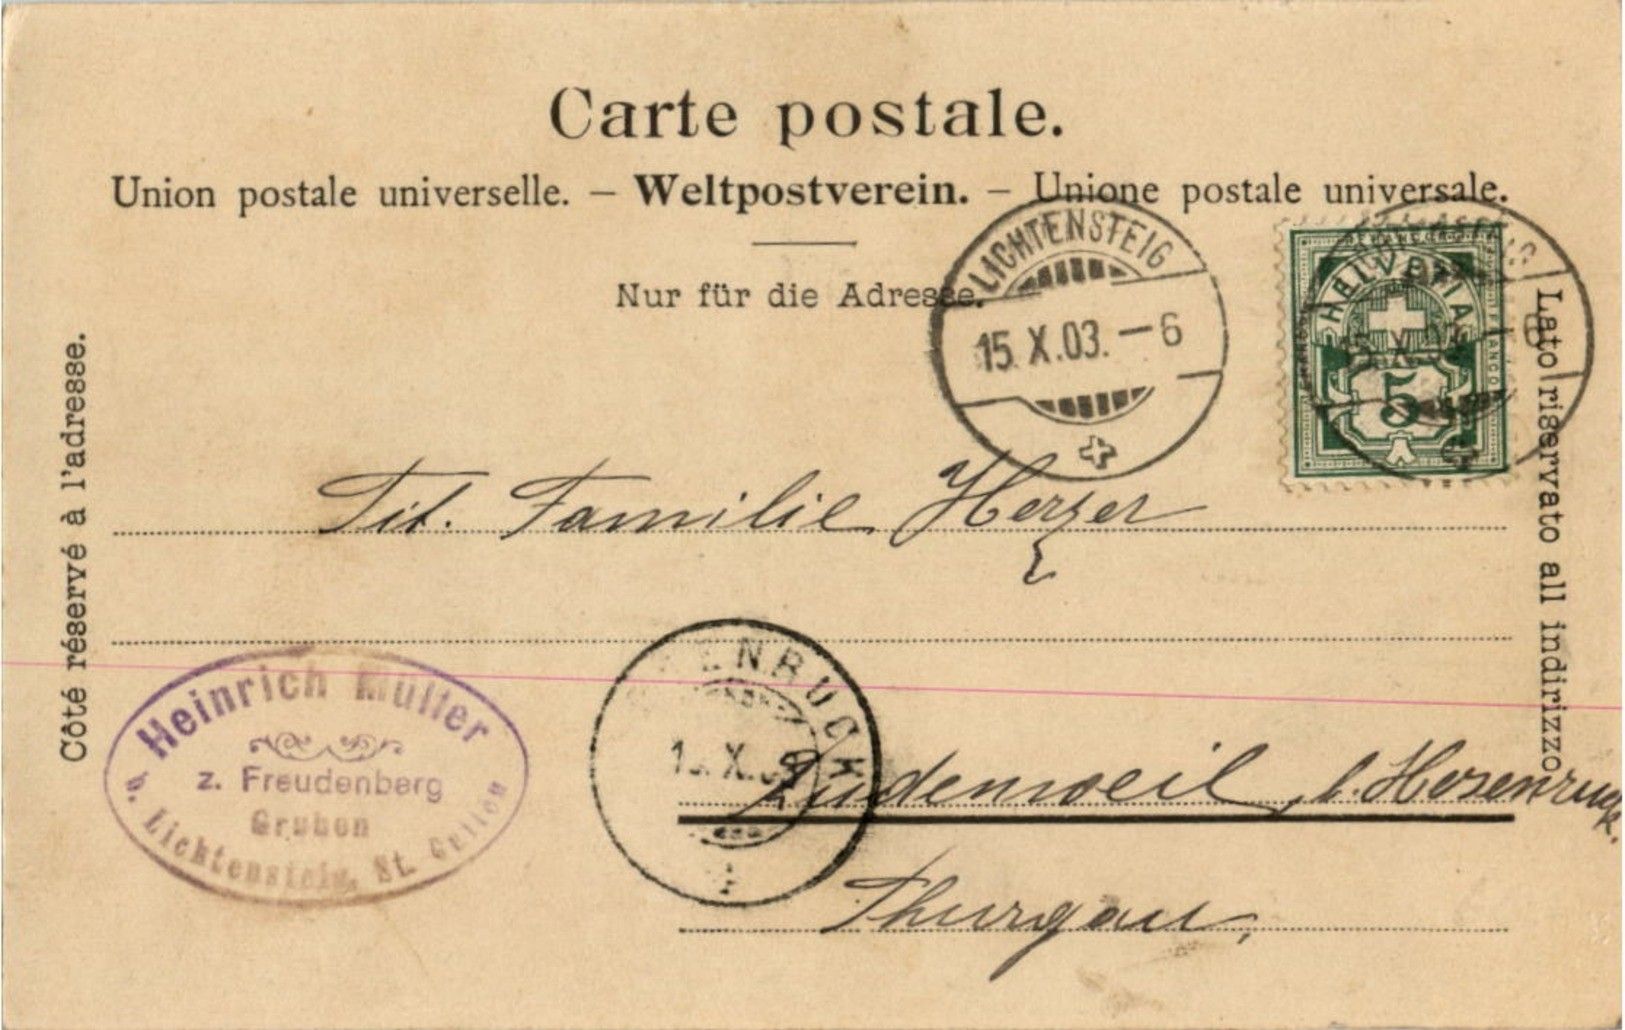 Carte postale.
Union postale universelle. — Weltpostverein. — Unione postale universale.
Nur für die Adresse.
Côté réservé à l'adresse.
Lato riservato all indirizzo
LICHTENSTEIG
15.X.03.—6
HELVETIA
5
FRANCO
Tit. Familie Herzer
Heinrich Müller
z. Freudenberg
Gruben
b. Lichtensteig, St. Gallen
ENBRUCK
X
Ludenweil, b. Hosenruck.
Thurgau,